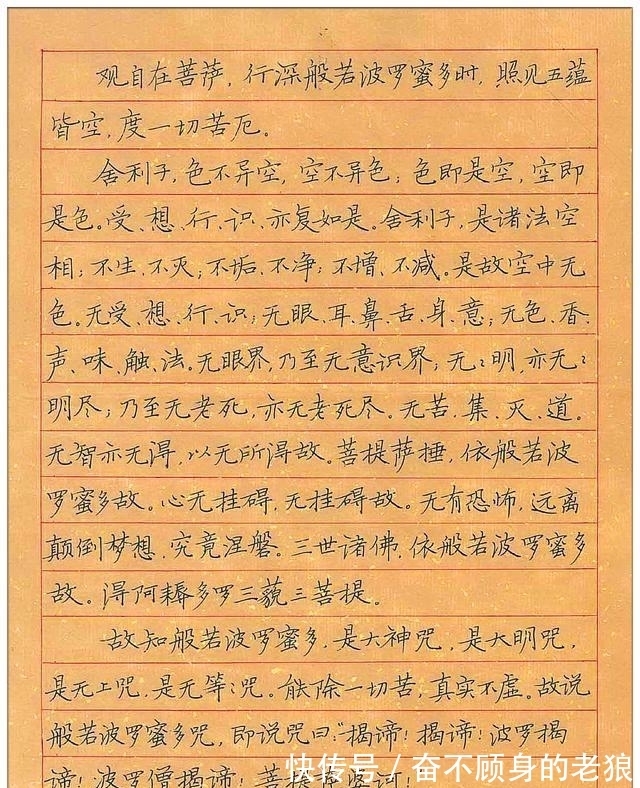 观自在菩萨,行深般若波罗蜜多时,照见五蕴
皆空,度一切苦厄。
舍利子,色不异空,空不异色;色即是空,空即
是色。受、想、行、识、亦复如是。舍利子,是诸法空
相;不生、不灭;不垢、不净;不增、不减。是故空中无
色。无受、想、行、识;无眼、耳、鼻、舌、身、意;无色、香、
声、味、触、法。无眼界,乃至无意识界;无:明,亦无:
明尽;乃至无老死,亦无老死尽。无苦、集、灭、道。
无智亦无得,以无所得故。菩提萨捶,依般若波
罗蜜多故。心无挂碍,无挂碍故。无有恐怖,远离
颠倒梦想,究竟涅磐。三世诸佛,依般若波罗蜜多
故。得阿耨多罗三藐三菩提。
故知般若波罗蜜多,是大神咒,是大明咒,
是无上咒,是无等:咒。能除一切苦,真实不虚。故说
般若波罗蜜多咒,即说咒曰:“揭谛!揭谛!波罗揭
谛!波罗僧揭谛!菩提
快传号/奋不顾身的老狼